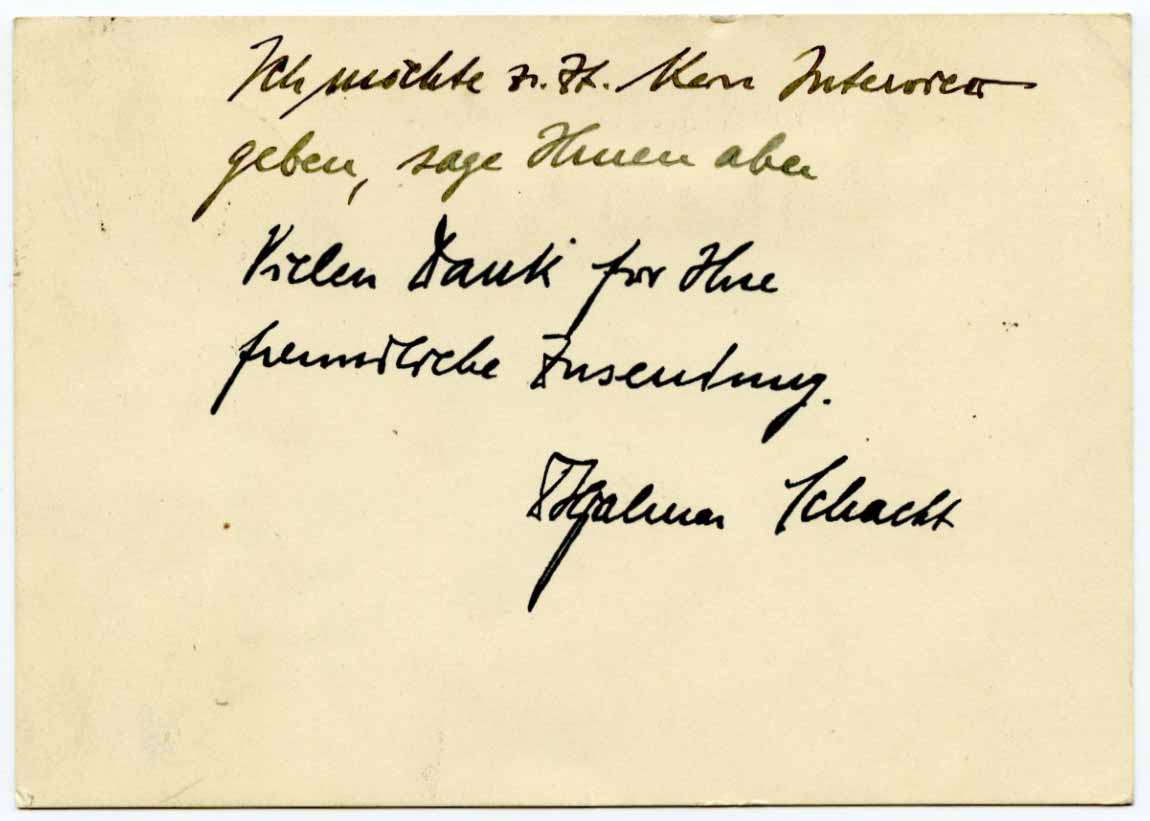 Ich möchte z. Zt. kein Interview
geben, sage Ihnen aber
Vielen Dank für Ihre
freundliche Zusendung.
Hjalmar Schacht